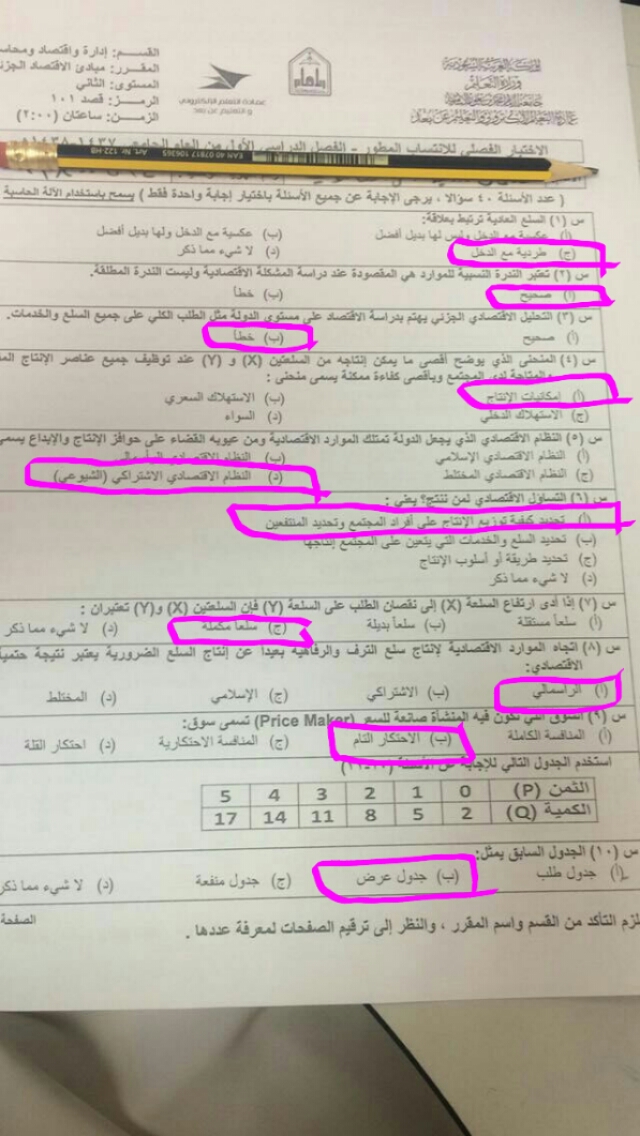 المملكة العربية السعودية
وزارة التعليم
القسم: إدارة واقتصاد ومحاس
المقرر: مبادئ الاقتصاد الجزئي
المستوى: الثاني
الرمز: قصد ١٠١
الزمن: ساعتان (٢:٠٠)
عمادة التعلم الإلكتروني
والتعليم عن بعد
الاختبار الفصلي للانتساب المطور - الفصل الدراسي الأول من العام الجامعي
EAN 40 07817 106365
Art. Nr. 122-HB
( عدد الأسئلة ٤٠ سؤالا ، يرجى الإجابة عن جميع الأسئلة باختيار إجابة واحدة فقط ) يسمح باستخدام الآلة الحاسبة
س (١) السلع العادية ترتبط بعلاقة:
(أ) عكسية مع الدخل وليس لها بديل أفضل (ب) عكسية مع الدخل ولها بديل أفضل
(ج) طردية مع الدخل (د) لا شيء مما ذكر
س (٢) تعتبر الندرة النسبية للموارد هي المقصودة عند دراسة المشكلة الاقتصادية وليست الندرة المطلقة.
(أ) صحيح (ب) خطأ
س (٣) التحليل الاقتصادي الجزئي يهتم بدراسة الاقتصاد على مستوى الدولة مثل الطلب الكلي على جميع السلع والخدمات.
(أ) صحيح (ب) خطأ
س (٤) المنحنى الذي يوضح أقصى ما يمكن إنتاجه من السلعتين (X) و (Y) عند توظيف جميع عناصر الإنتاج
والمتاحة لدى المجتمع وبأقصى كفاءة ممكنة يسمى منحنى :
(أ) إمكانيات الإنتاج (ب) الاستهلاك السعري
(ج) الاستهلاك الدخلي (د) السواء
س (٥) النظام الاقتصادي الذي يجعل الدولة تمتلك الموارد الاقتصادية ومن عيوبه القضاء على حوافز الإنتاج والإبداع يسمى
(أ) النظام الاقتصادي الإسلامي (ب) النظام الاقتصادي الرأسمالي
(ج) النظام الاقتصادي المختلط (د) النظام الاقتصادي الاشتراكي (الشيوعي)
س (٦) التساول الاقتصادي لمن تنتج؟ يعني :
(أ) تحديد كيفية توزيع الإنتاج على أفراد المجتمع وتحديد المنتفعين
(ب) تحديد السلع والخدمات التي يتعين على المجتمع إنتاجها
(ج) تحديد طريقة أو أسلوب الإنتاج
(د) لا شيء مما ذكر
س (٧) إذا أدى ارتفاع السلعة (X) إلى نقصان الطلب على السلعة (Y) فإن السلعتين (X) و(Y) تعتبران :
(أ) سلعاً مستقلة (ب) سلعاً بديلة (ج) سلعاً مكملة (د) لا شيء مما ذكر
س (٨) اتجاه الموارد الاقتصادية لإنتاج سلع الترف والرفاهية بعيداً عن إنتاج السلع الضرورية يعتبر نتيجة حتمية
الاقتصادي:
(أ) الراسمالي (ب) الاشتراكي (ج) الإسلامي (د) المختلط
س (٩) السوق التي تكون فيه المنشأة صانعة للسعر (Price Maker) تسمى سوق:
(أ) المنافسة الكاملة (ب) الاحتكار التام (ج) المنافسة الاحتكارية (د) احتكار القلة
استخدم الجدول التالي للإجابة عن الأسئلة
الثمن (P) 0 1 2 3 4 5
الكمية (Q) 2 5 8 11 14 17
س (١٠) الجدول السابق يمثل:
(أ) جدول طلب (ب) جدول عرض (ج) جدول منفعة (د) لا شيء مما ذكر
لزم التأكد من القسم واسم المقرر ، والنظر إلى ترقيم الصفحات لمعرفة عددها .
الصفحة